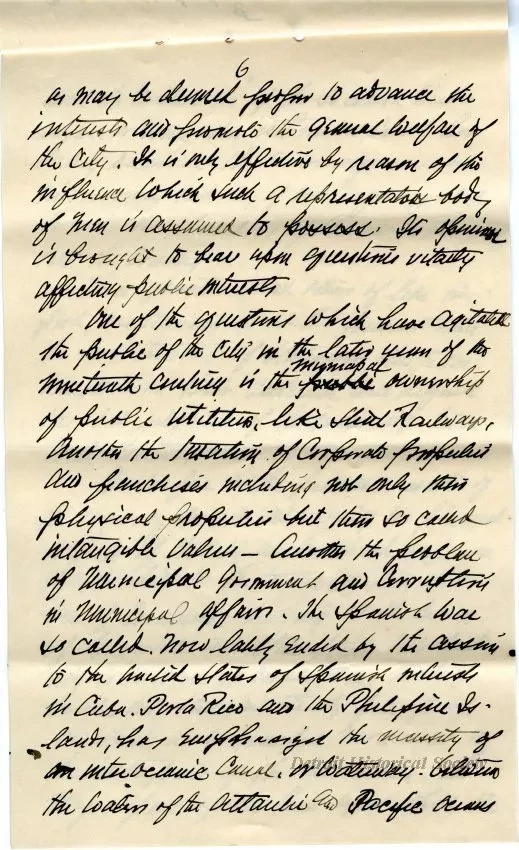 6
as may be deemed proper to advance the
interests and promote the general welfare of
the City. It is only effective by reason of the
influence which such a representative body
of men is assumed to possess. Its opinion
is brought to bear upon questions vitally
affecting public interests
One of the questions which have agitated
the public of the City in the later years of the
municipal
nineteenth century is the public ownership
of public utilities, like Street Railways,
Another the taxation of Corporate properties
and franchises including not only their
physical properties but their so called
intangible values — Another the problem
of Municipal Government and Corruption
in Municipal affairs. The Spanish War
so called. Now lately ended by the
to the United States of Spanish interests
in Cuba. Porto Rico and the Philipine Is-
lands, has emphasized the necessity of
an interoceanic Canal, or waterway. between
the waters of the Atlantic and Pacific oceans
Detroit Historical Society